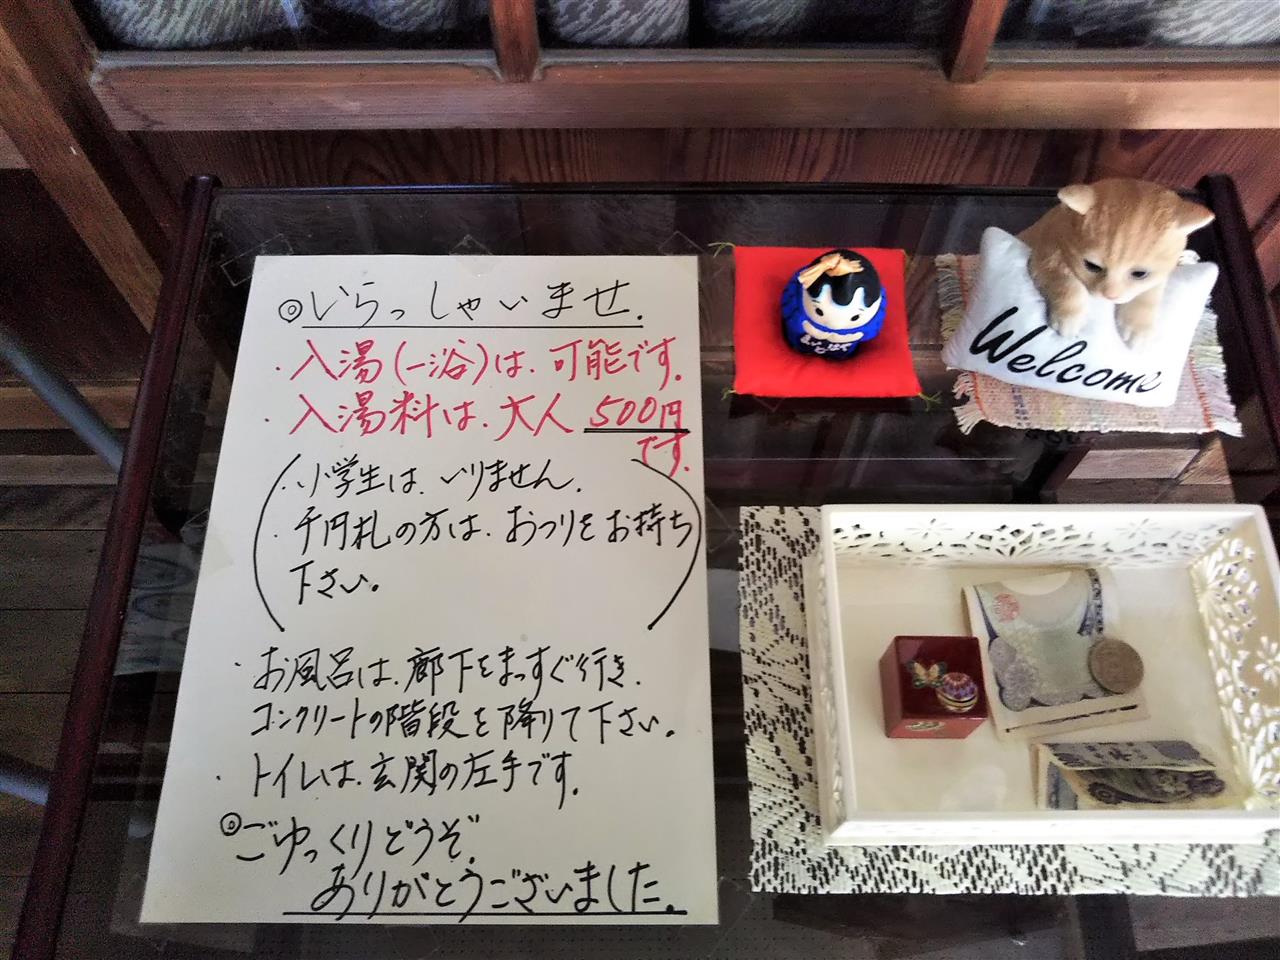 ◎いらっしゃいませ.
・入湯(一浴)は、可能です。
・入湯料は、大人500円
です。
・小学生は、いりません。
・千円札の方は、おつりをお持ち
下さい。
・お風呂は、廊下をまっすぐ行き、
コンクリートの階段を降りて下さい。
・トイレは、玄関の左手です。
◎ごゆっくりどうぞ。
ありがとうございました。
Welcome